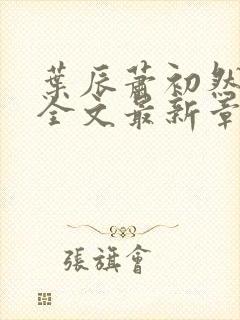 葉辰蕭初然
全文最新章
張旗會